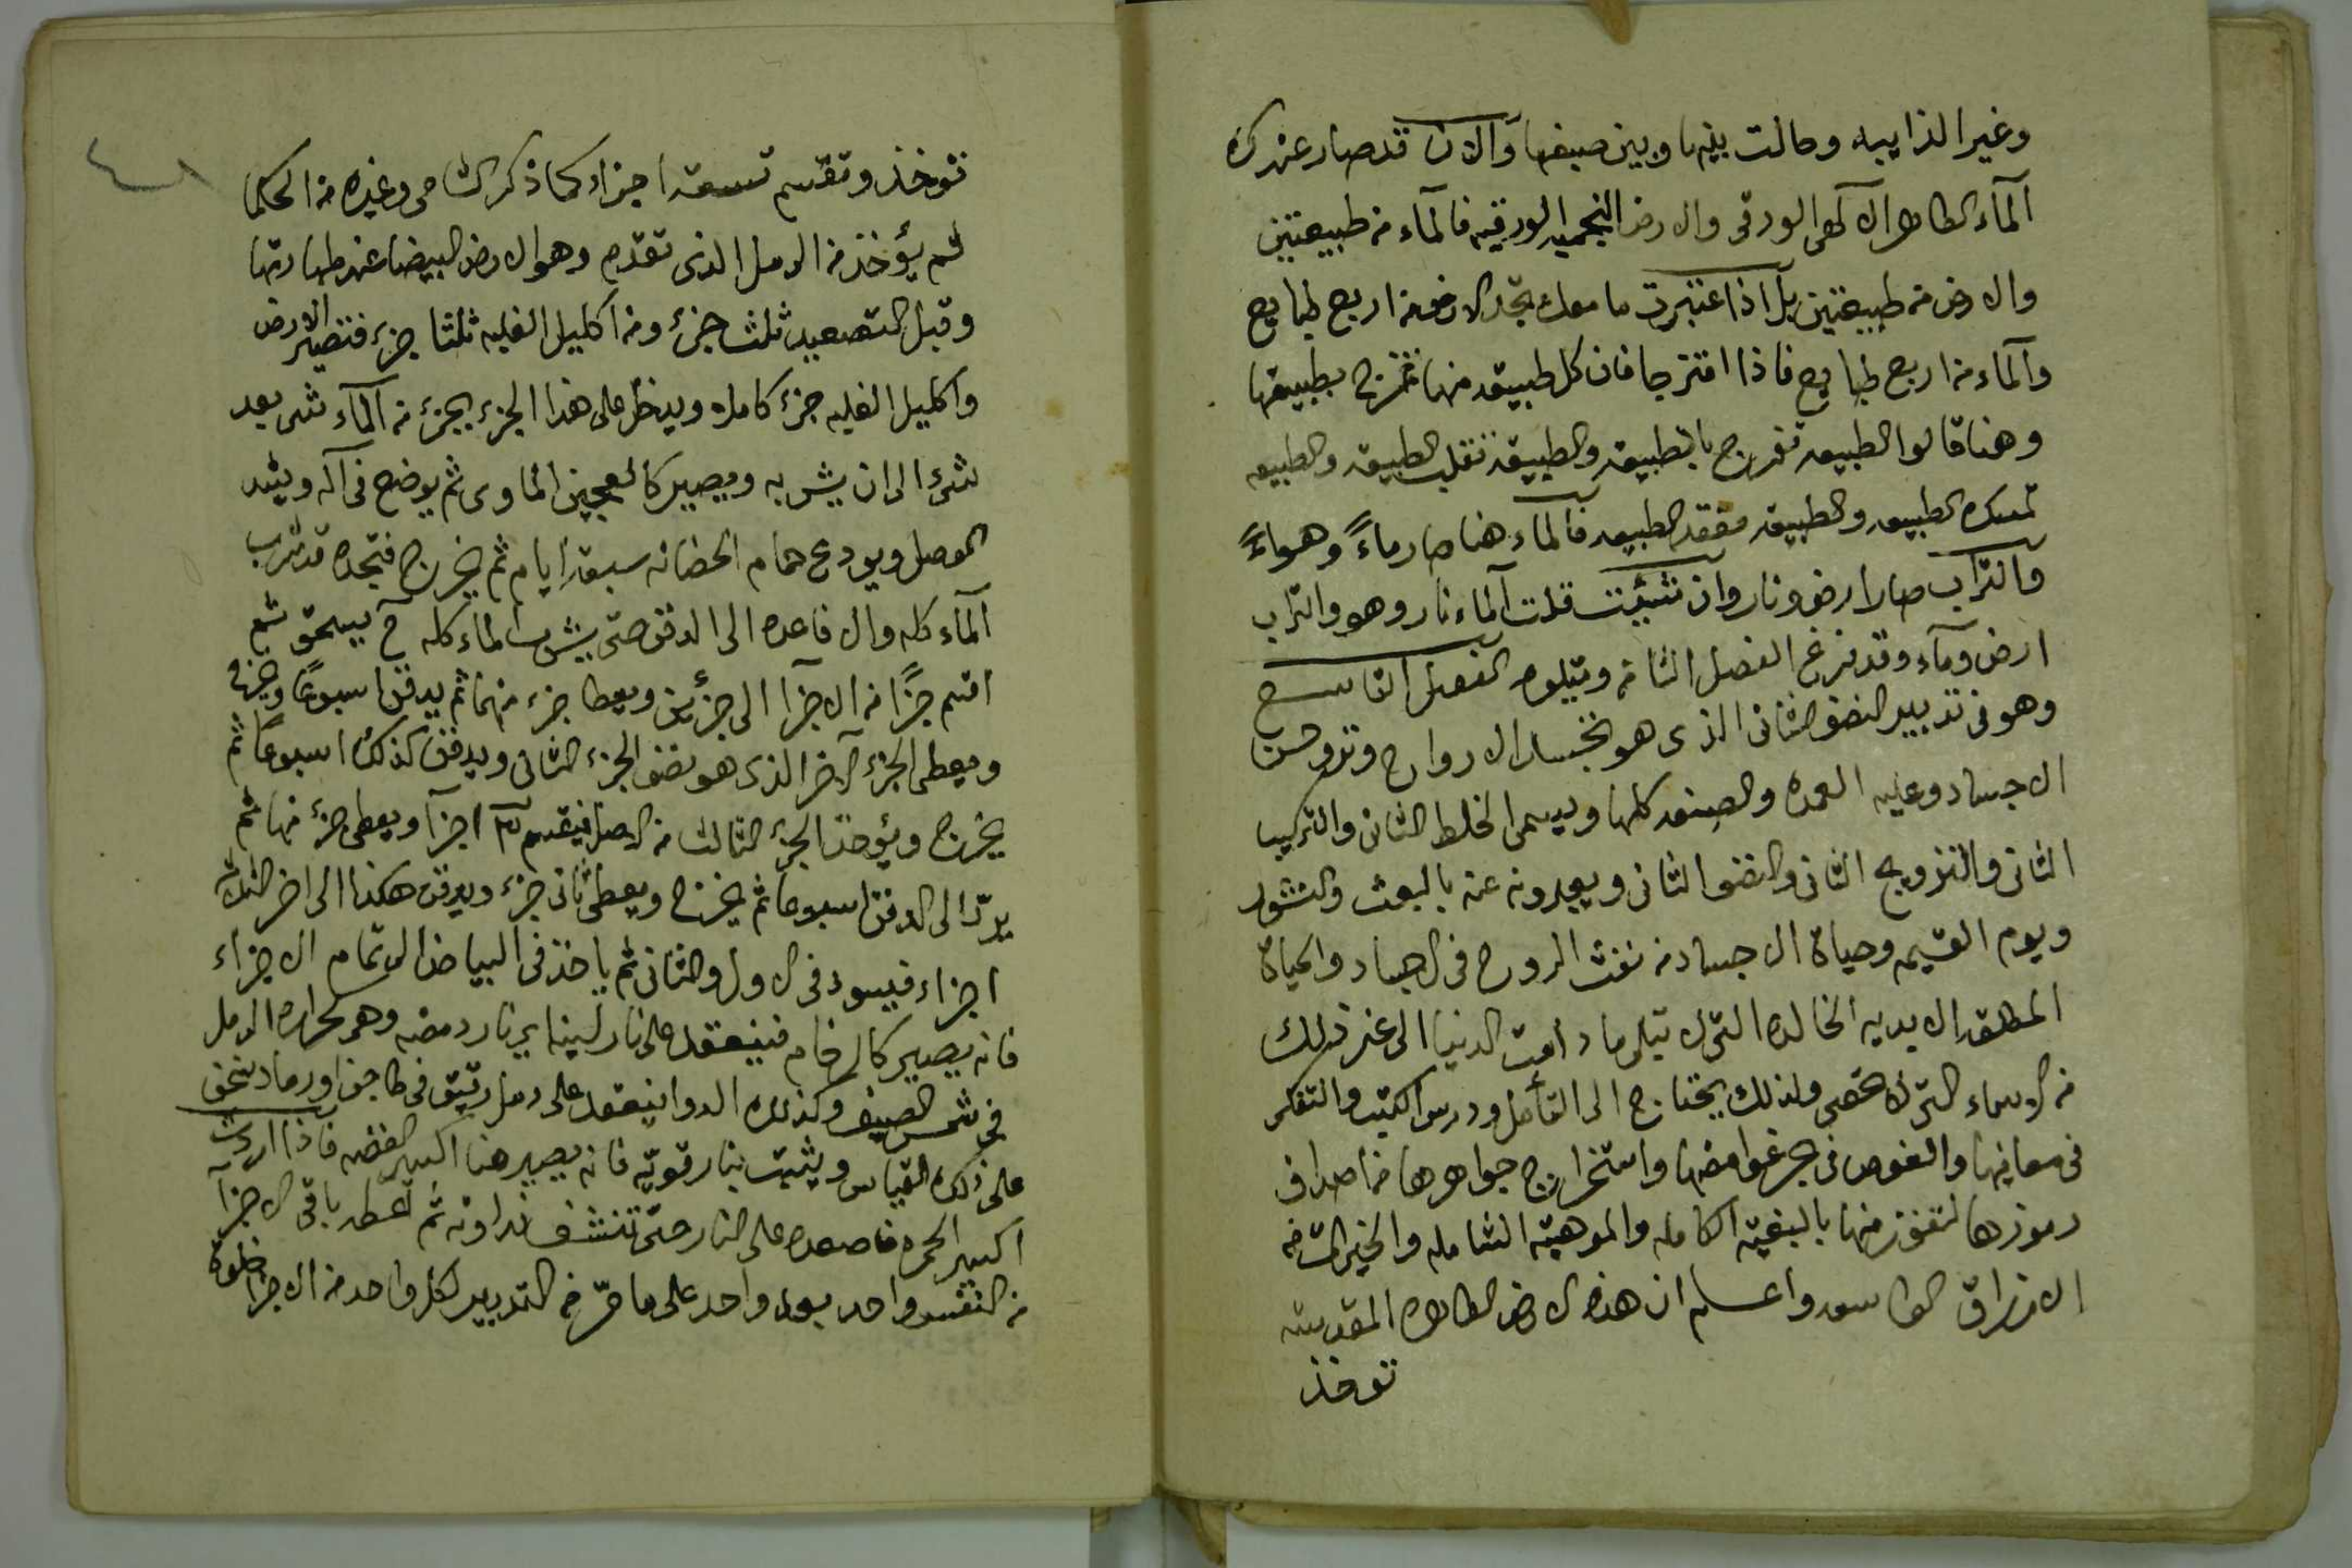 وغير الذايبه وحالت بينها وبين صبغها والان قد صار عندك
الماء الطاهر الالهى الورقى والارض النجميه الورقيه فالماء من طبيعتين
والارض من طبيعتين بل اذا اعتبرت ما معك تجد الارض من اربع طبايع
والماء من اربع طبايع فاذا امتزجا فان كل طبيعة منها تمتزج بطبيعتها
وهنا قالوا الطبيعه تفرح بالطبيعة والطبيعة تقلب الطبيعة والطبيعه
تمسك الطبيعه والطبيعة الطبيعه فالماء هنا صار ماءً وهواءً
والتراب صار ارض ونار وان شيئت قلت الماء نار وهو والتراب
ارض وماء وقد فرغ الفصل الثامن ويتلوه الفصل التاسع
وهو فى تدبير النصف الثانى الذى هو تجسد الارواح وتروحن
الاجساد وعليه العمده والصنعه كلها ويسمى الخلط الثانى والتركيب
الثانى والتزويج الثانى والنصف الثانى ويعبرونه عنه بالبعث والنشور
ويوم القيمه وحياة الاجساد من نفث الروح فى الاجساد والحياة
المطلقه الابديه الخالده التى لا تبلى ما دامت الدنيا الى غير ذلك
من الاسماء التى لا تحصى ولذلك يحتاج الى التأمل ودرس الكتب والتفكر
فى معانيها والغوص فى بحر غوامضها واستخراج جواهرها من اصداف
رموزها لتفوز منها بالبغيه الكامله والموهبة الشامله والخيرات من
الارزاق الواسعه واعلم ان هذه الارض الطاهره المقدسه
توخذ
فتوخذ وتقسم تسعة اجزاء كما ذكر الشامى وغيره من الحكما
ثم يؤخذ من الرمل الذى تقدم وهو الارض البيضا عند طهارتها
وقبل التصعيد ثلث جزء ومن اكليل الغلبه ثلثا جزء فتصير الارض
واكليل الغلبه جزء كامله ويدخل على هذا الجزء بجزء من الماء شى بعد
شىء الى ان يشربه ويصير كالعجين الماوى ثم يوضع فى اله ويشد
الوصل ويودع حمام الحضانه سبعة ايام ثم يخرج فتجده قد شرب
الماء كله والا فاعده الى الدفن حتى يشرب الماء كله ح يسحق ثم
اقسم جزًا من الاجزا الى جزئين ويعطا جزء منهما ثم يدفن اسبوعًا ويخرج
ويعطى الجزء الاخر الذى هو نصف الجزء الثانى ويدفن كذلك اسبوعًا ثم
يخرج ويؤخذ الجزء الثالث من الاصل فيقسم ٣ اجزا ويعطى جزء منها ثم
يردّ الى الدفن اسبوعا ثم يخرج ويعطى ثانى جزء ويدفن هكذا الى اخر الثلاث
اجزاء فيسود فى الاول والثانى ثم ياخذ فى البياض الى تمام الاجزاء
فانه يصير كالرخام فينعقد على نار لينه اى نار رمضه وهى كحرارة الرمل
فى شمس الصيف وكذلك الدوا ينعقد على رمل رقيق فى طاجن او رماد ينخل
على ذلك القياس ويثبت بنار قويّه فانه يصير هنا اكسير الفضه فاذا اردت
اكسير الحمره فاصعده على النار حتى تنشف نداوته ثم اعطه باقى الاجزا
من النفس واحد بعد واحد على ما مرّ من التدبير لكل واحد من الاجزا